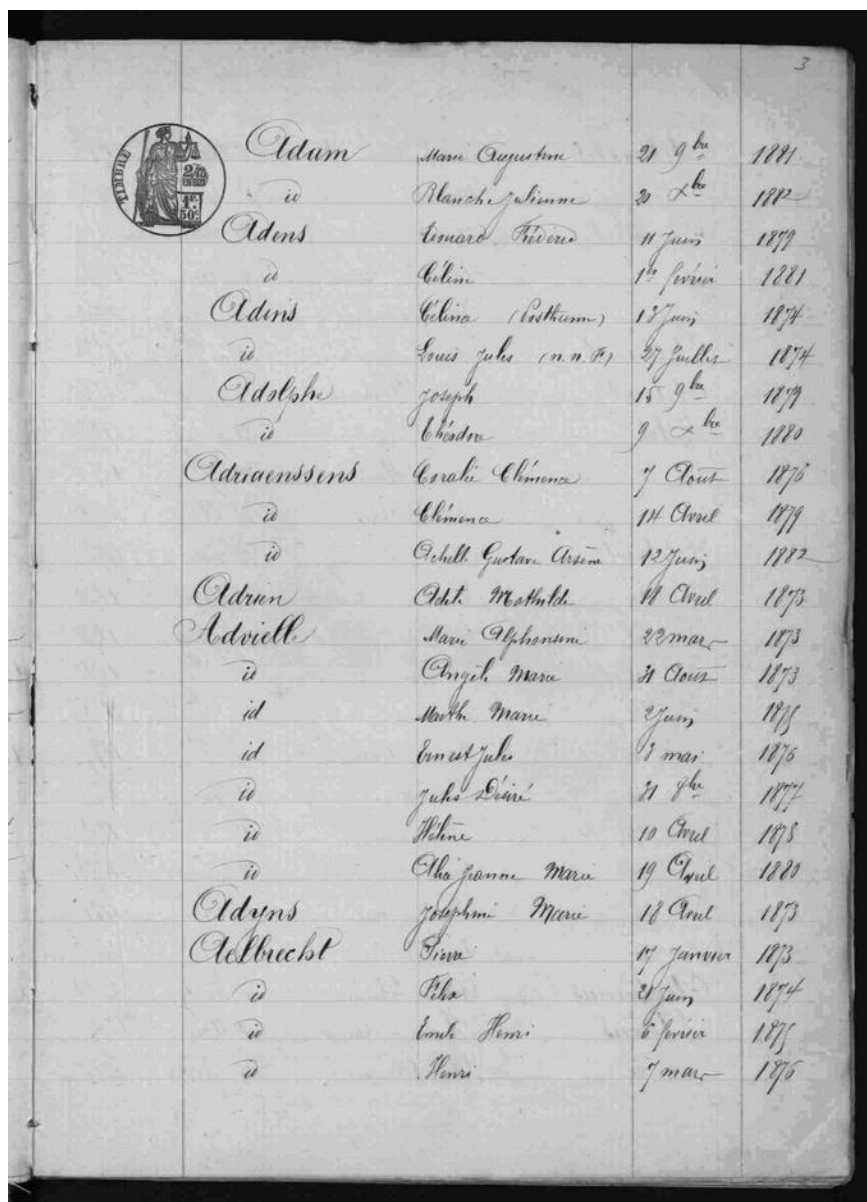 3
TIMBRE
1F.
50c.
Adam Marie Augustine 21 9bre 1881
id Blanche Julienne 20 Xbre 1882
Adens Edouard Frédéric 11 Juin 1879
id Céline 1er février 1881
Adins Célina (Posthume) 13 Juin 1874
id Louis Jules (n. n. F.) 27 Juillet 1874
Adolphe Joseph 15 9bre 1879
id Théodore 9 Xbre 1880
Adriaenssens Coralie Clémence 7 Août 1876
id Clémence 14 Avril 1879
id Achille Gustave Arsène 12 Juin 1882
Adrien Mathilde 18 Avril 1873
Advielle Marie Alphonsine 22 mars 1873
id Angèle Marie 31 Août 1873
id Marthe Marie 2 Juin 1875
id Ernest Jules 8 mai 1876
id Jules Désiré 31 8bre 1877
id Hélène 10 Avril 1878
id Jeanne Marie 19 Avril 1880
Adyns Joséphine Marie 18 Avril 1873
Aelbrecht Pierre 17 Janvier 1873
id 21 Juin 1874
id Emile Henri 6 février 1875
id Henri 7 mars 1876